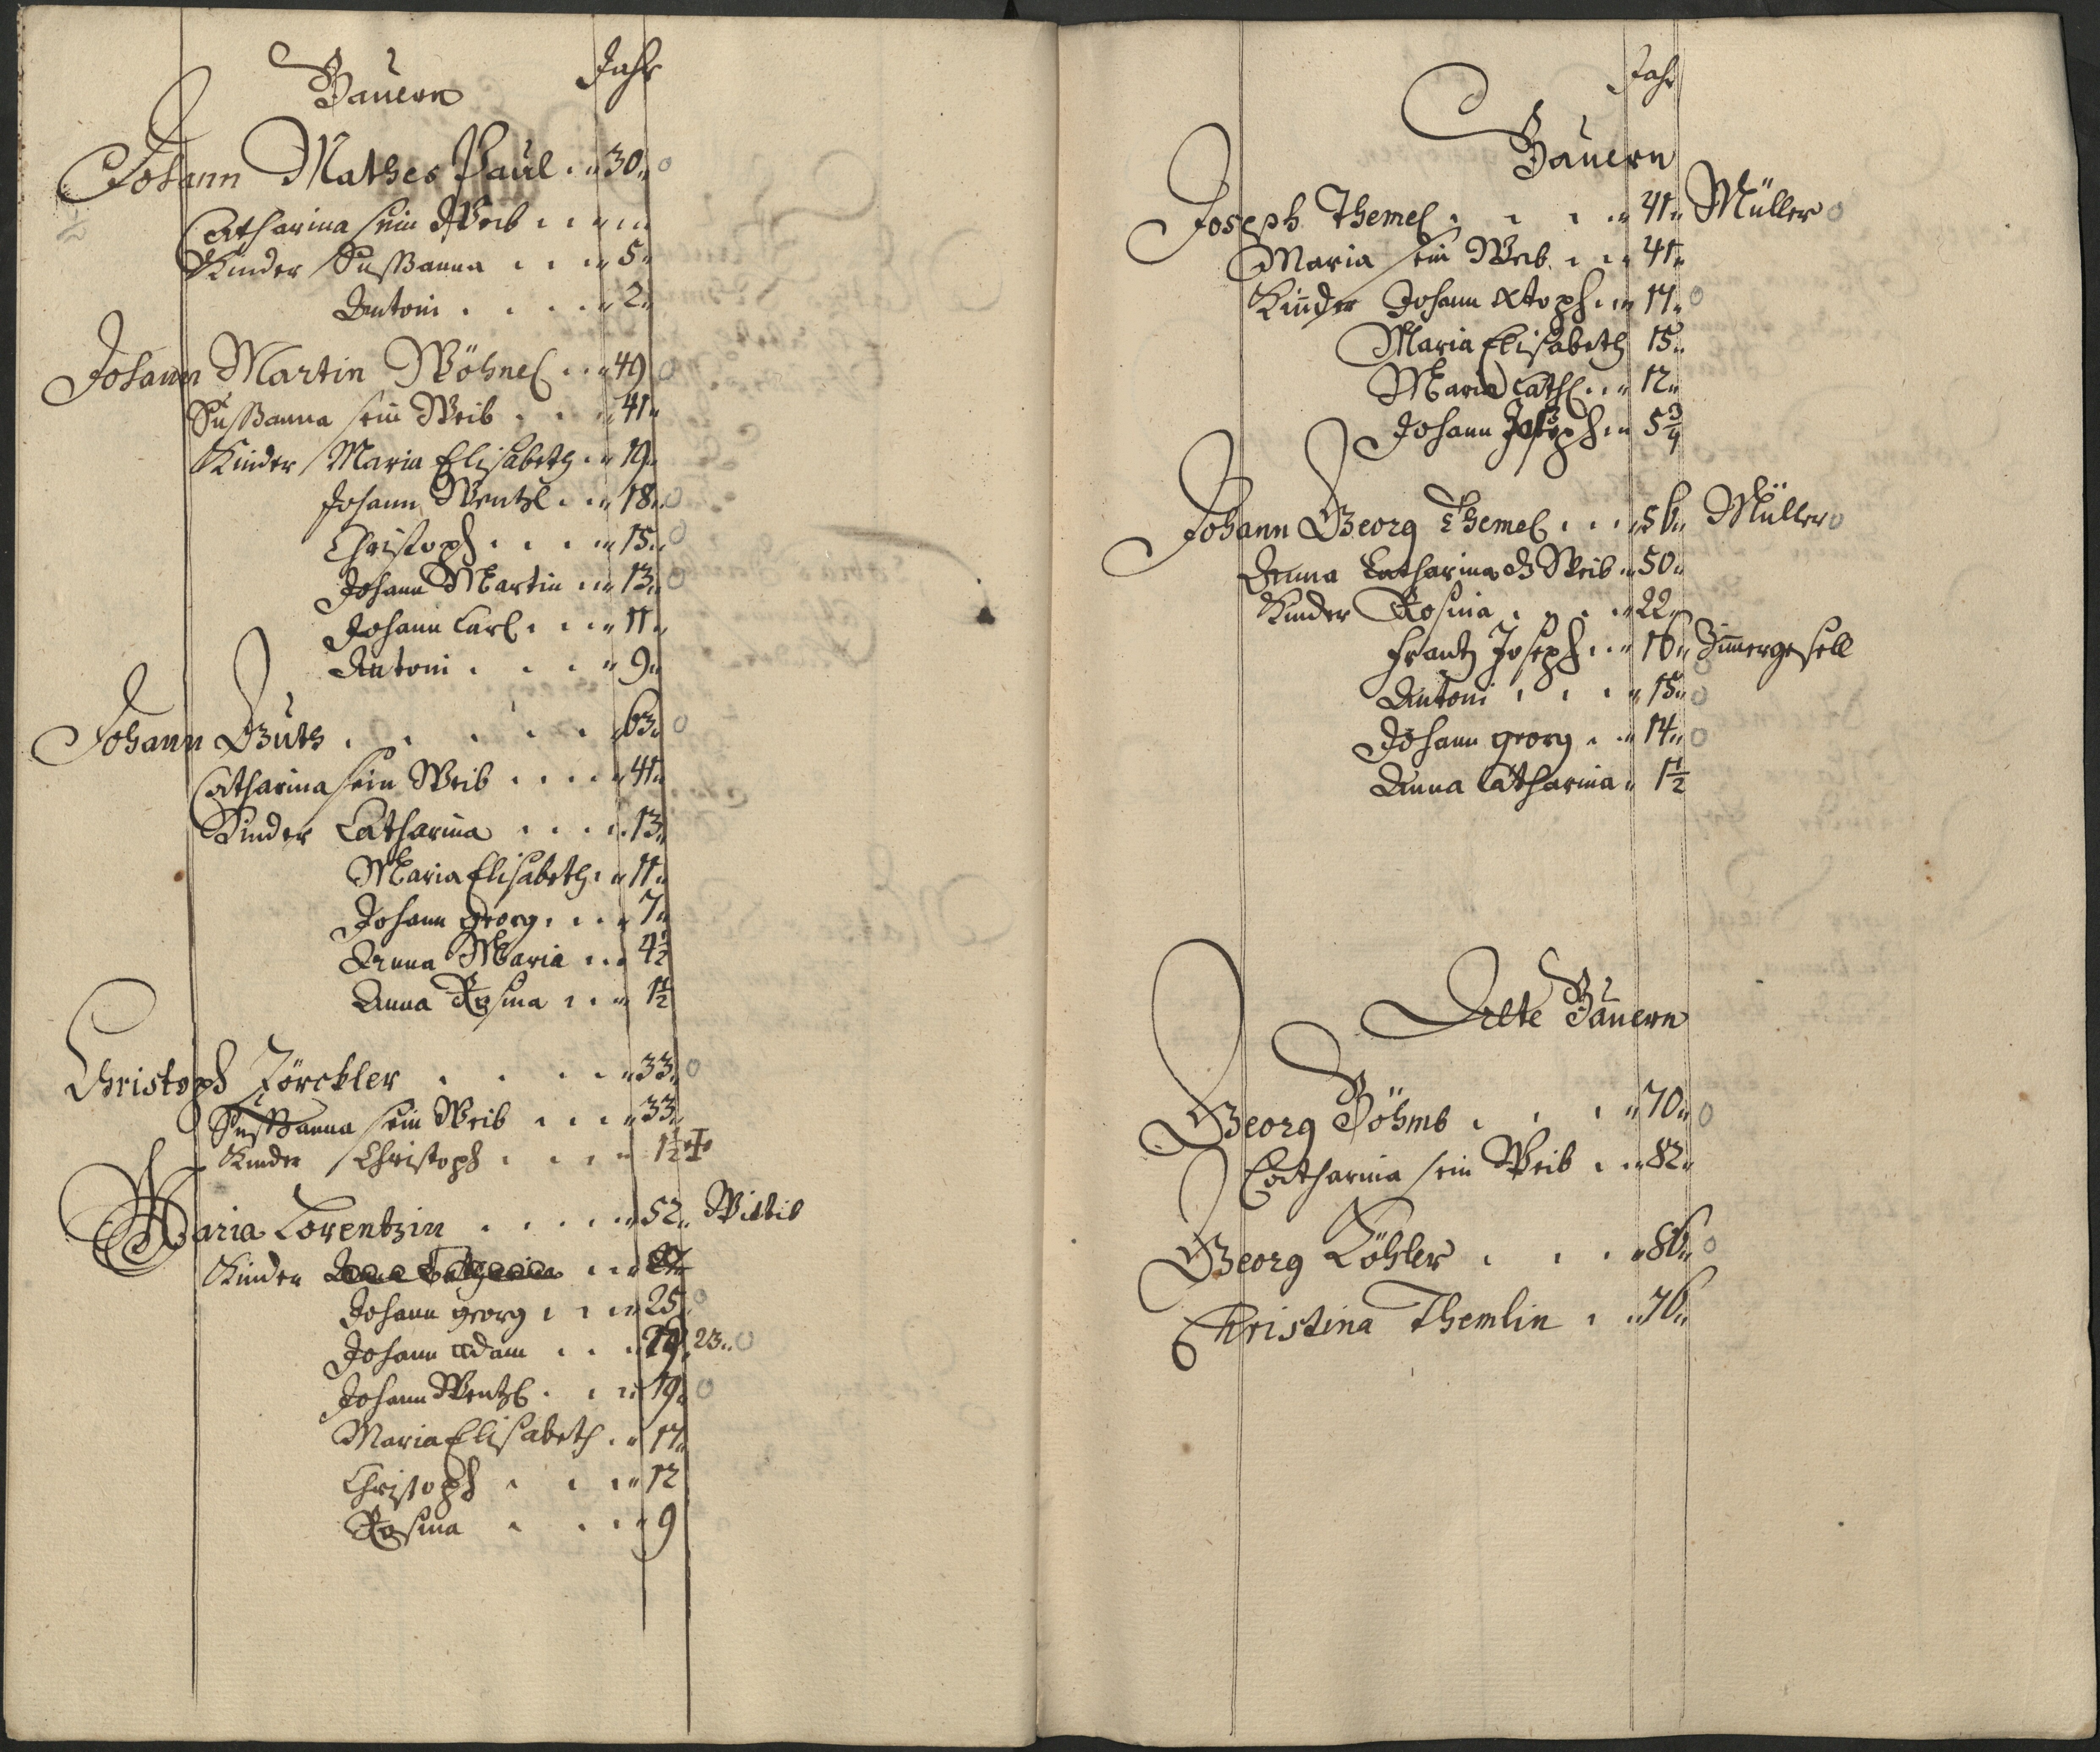 Bauern Jahr
Johann Mathes Paul 30
Catharina sein Weib
Kinder Sußanna 5
Antoni 2
Johann Martin Wöhnel 49
Sußanna sein Weib 41
Kinder Maria Elisabeth 19
Johann Wentzl 18
Christoph 15
Johann Martin 13
Johann Carl 11
Antoni 9
Johann Guth 63
Catharina sein Weib 41
Kinder Catharina 13
Maria Elisabeth 11
Johann Georg 7
Anna Maria 4½
Anna Rosina 1½
Christoph Zörckler 33
Sußanna sein Weib 33
Kinder Christoph 1½ ✝
Maria Lorentzin 52 Wittib
Kinder
Johann georg 25
Johann Adam 23
Johann Wentzl 19
Maria Elisabeth 17
Christoph 12
Rosina 9
Jahr
Bauern
Joseph Themel 41 Müller
Maria sein Weib 41
Kinder Johann Xtoph 17
Maria Elisabeth 15
Maria Cath 12
Johann Joseph 5¾
Johann Georg Themel 56 Müller
Anna Catharina Weib 50
Kinder Rosina 22
Frantz Joseph 16 Zimergesell
Antoni 15
Johann georg 14
Anna Catharina 1½
Alte Bauern
Georg Böhmb 70
Catharina sein Weib 82
Georg Köhler 86
Christina Themlin 76